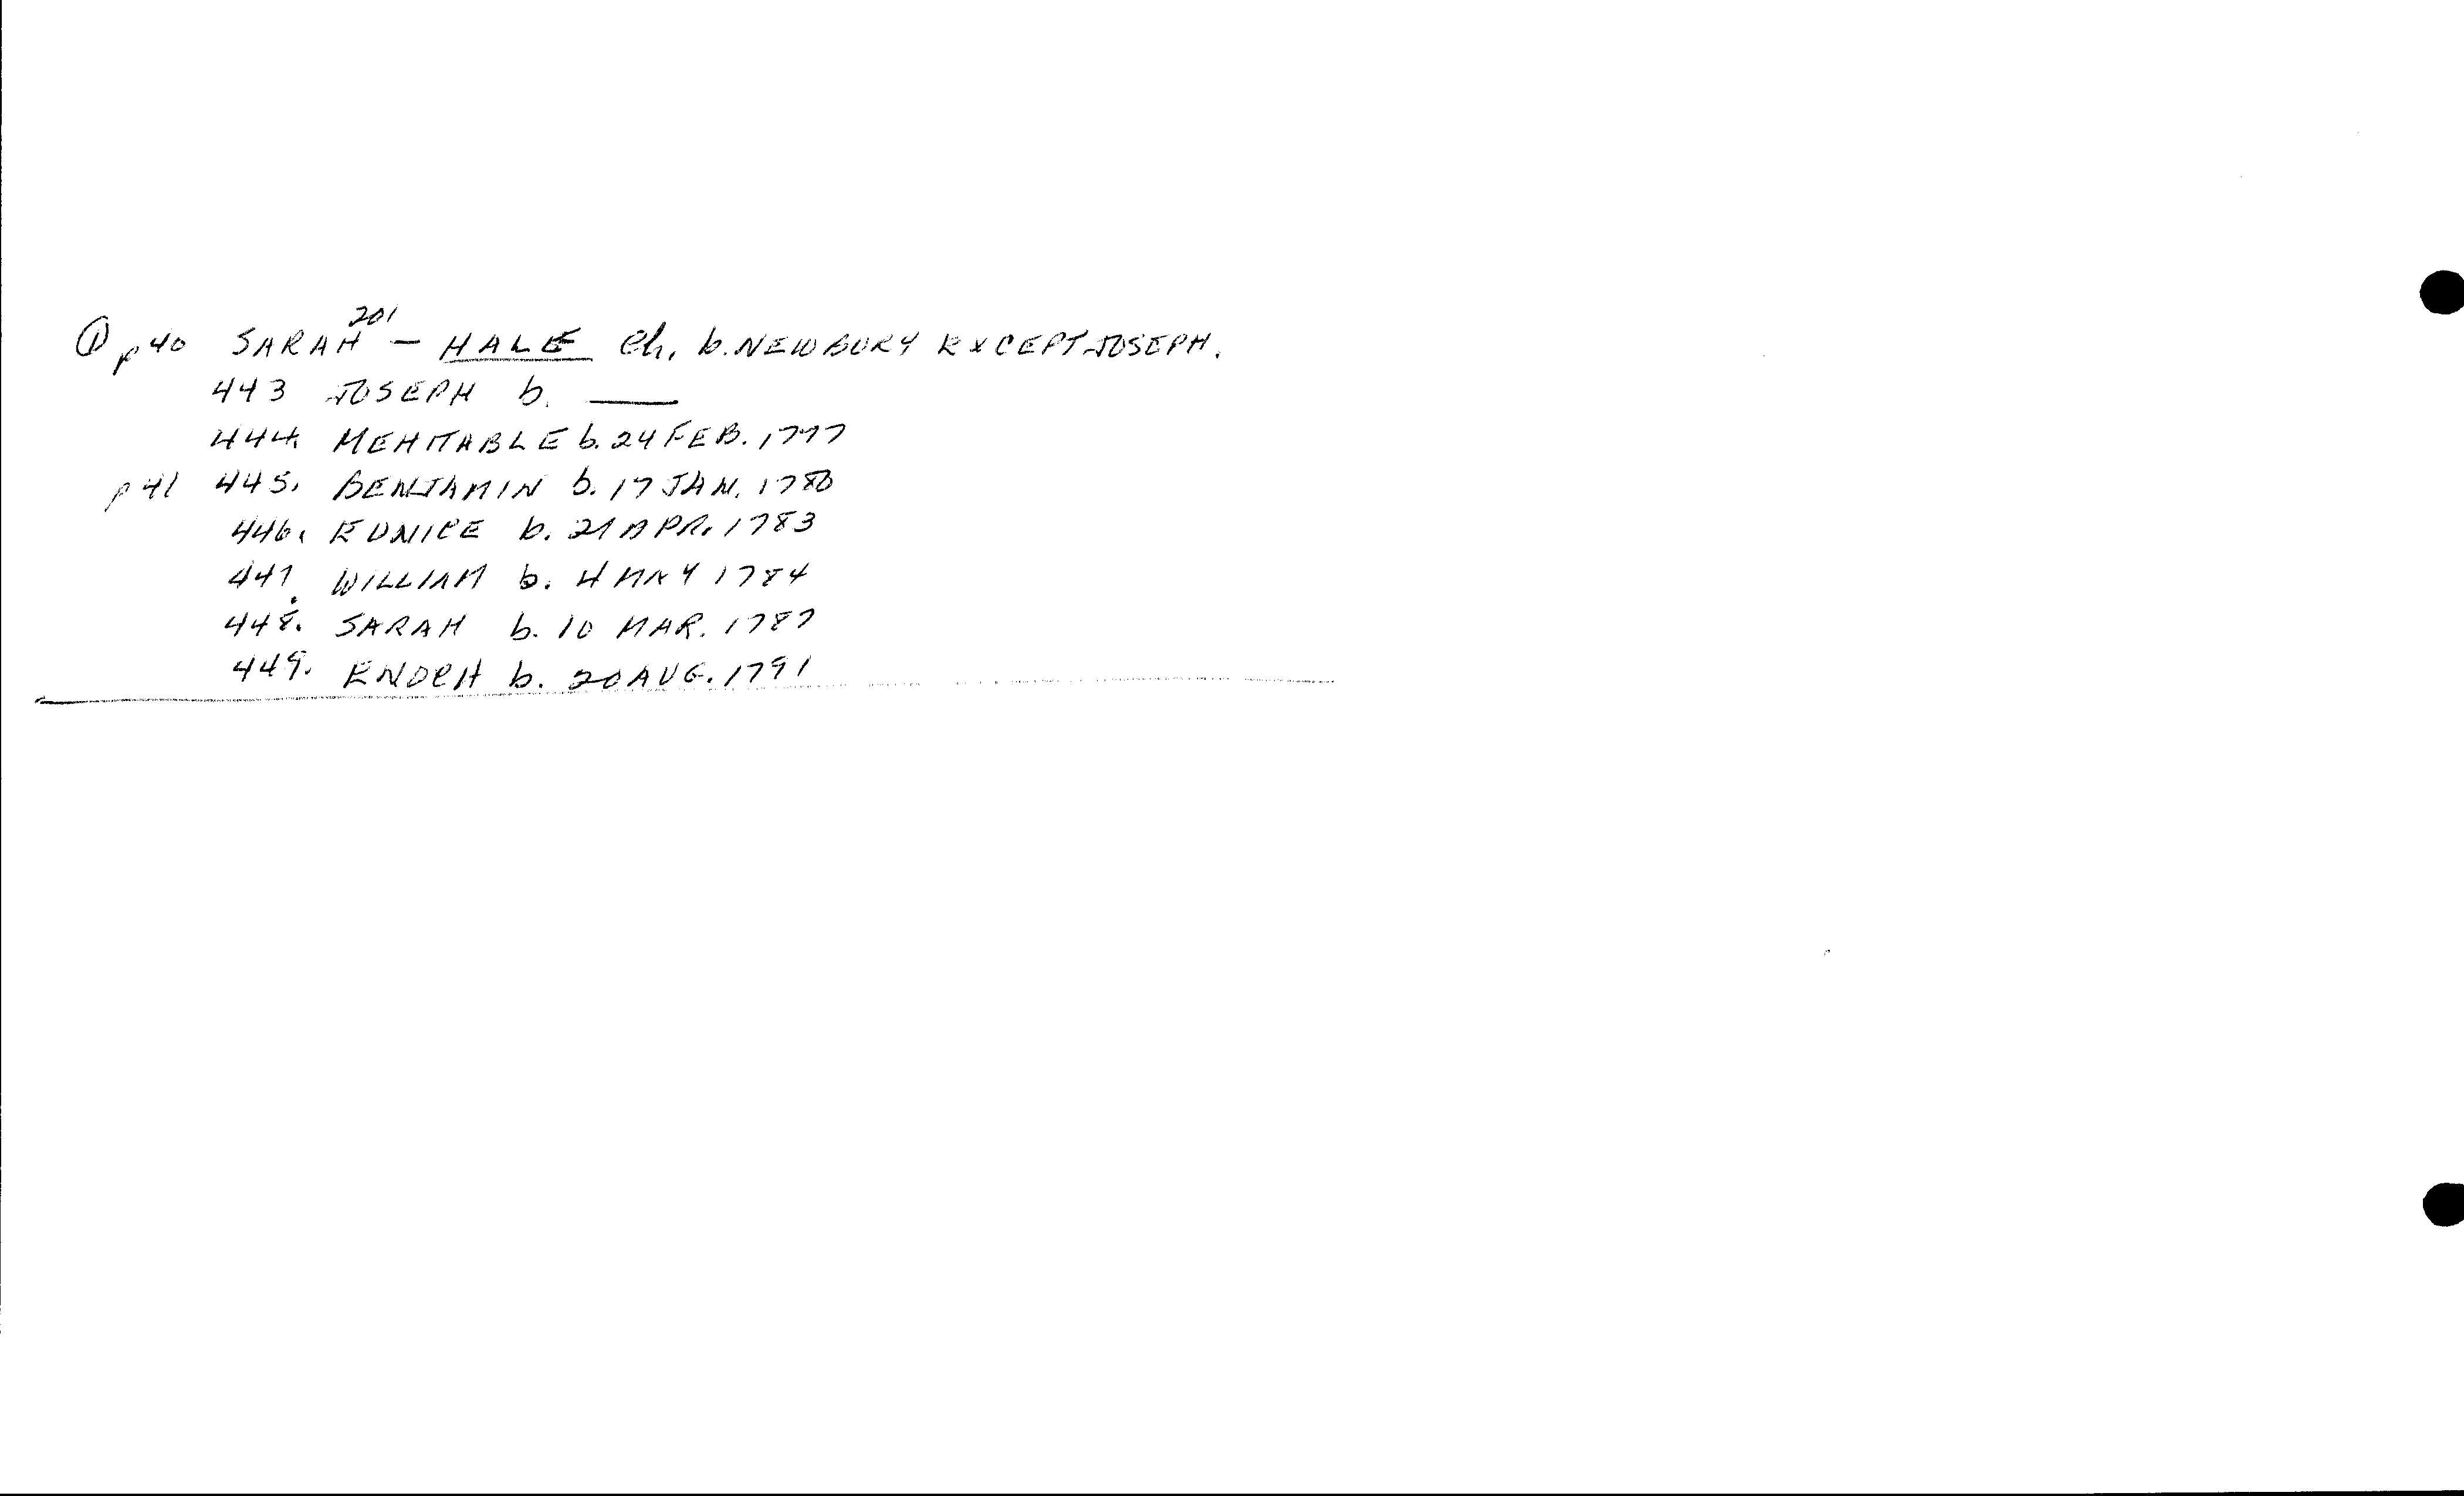 ① p40 SARAH²⁰¹ — HALE Ch. b. NEWBURY EXCEPT JOSEPH.
443 JOSEPH b. ——
444. MEHITABLE b. 24 FEB. 1777
p41 445. BENJAMIN b. 17 JAN. 1780
446. EUNICE b. 21 APR. 1783
447. WILLIAM b. 4 MAY 1784
448. SARAH b. 10 MAR. 1787
449. ENOCH b. 20 AUG. 1791